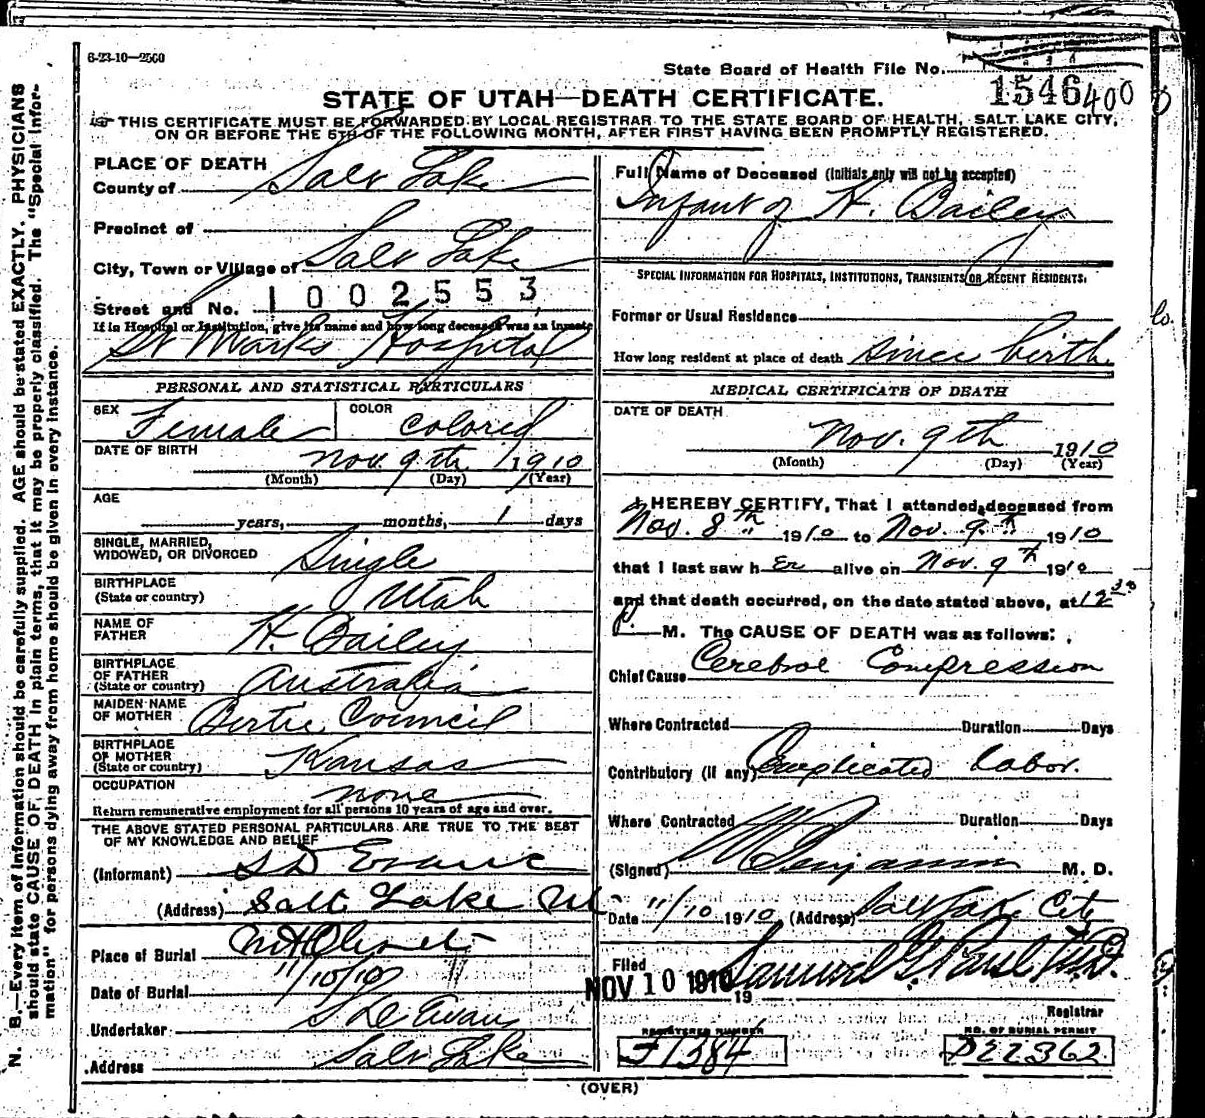 6-23-10—2560
State Board of Health File No.
1546400
STATE OF UTAH—DEATH CERTIFICATE.
THIS CERTIFICATE MUST BE FORWARDED BY LOCAL REGISTRAR TO THE STATE BOARD OF HEALTH, SALT LAKE CITY,
ON OR BEFORE THE 5TH OF THE FOLLOWING MONTH, AFTER FIRST HAVING BEEN PROMPTLY REGISTERED.
N. B.—Every item of information should be carefully supplied. AGE should be stated EXACTLY. PHYSICIANS
should state CAUSE OF DEATH in plain terms, that it may be properly classified. The "Special Infor-
mation" for persons dying away from home should be given in every instance.
PLACE OF DEATH
County of Salt Lake
Precinct of
City, Town or Village of Salt Lake
Street and No. 1002553
If in Hospital or Institution, give its name and how long deceased was an inmate
St Marks Hospital
PERSONAL AND STATISTICAL PARTICULARS
SEX Female COLOR Colored
DATE OF BIRTH Nov. 9th 1910
(Month) (Day) (Year)
AGE
years, months, 1 days
SINGLE, MARRIED,
WIDOWED, OR DIVORCED Single
BIRTHPLACE
(State or country) Utah
NAME OF
FATHER H. Bailey
BIRTHPLACE
OF FATHER
(State or country) Australia
MAIDEN NAME
OF MOTHER Bertie Council
BIRTHPLACE
OF MOTHER
(State or country) Kansas
OCCUPATION none
Return remunerative employment for all persons 10 years of age and over.
THE ABOVE STATED PERSONAL PARTICULARS ARE TRUE TO THE BEST
OF MY KNOWLEDGE AND BELIEF
(Informant) S D Evans
(Address) Salt Lake Ut
Place of Burial Mt Olivet
Date of Burial 11/10/10
Undertaker S D Evans
Address Salt Lake
Full Name of Deceased (Initials only will not be accepted)
Infant of H. Bailey
SPECIAL INFORMATION FOR HOSPITALS, INSTITUTIONS, TRANSIENTS OR RECENT RESIDENTS.
Former or Usual Residence
How long resident at place of death since birth
MEDICAL CERTIFICATE OF DEATH
DATE OF DEATH
Nov. 9th 1910
(Month) (Day) (Year)
I HEREBY CERTIFY, That I attended deceased from
Nov. 8th 1910 to Nov. 9th 1910
that I last saw her alive on Nov. 9th 1910
and that death occurred, on the date stated above, at 12 30
P. M. The CAUSE OF DEATH was as follows:
Chief Cause Cerebral Compression
Where Contracted Duration Days
Contributory (if any) Complicated labor.
Where Contracted Duration Days
(Signed) Benjamin M. D.
Date 11/10 1910 (Address) Salt Lake City
Filed NOV 10 1910 19 Samuel G. Paul M.D.
Registrar
REGISTERED NUMBER
F1384
NO. OF BURIAL PERMIT
D22362
(OVER)